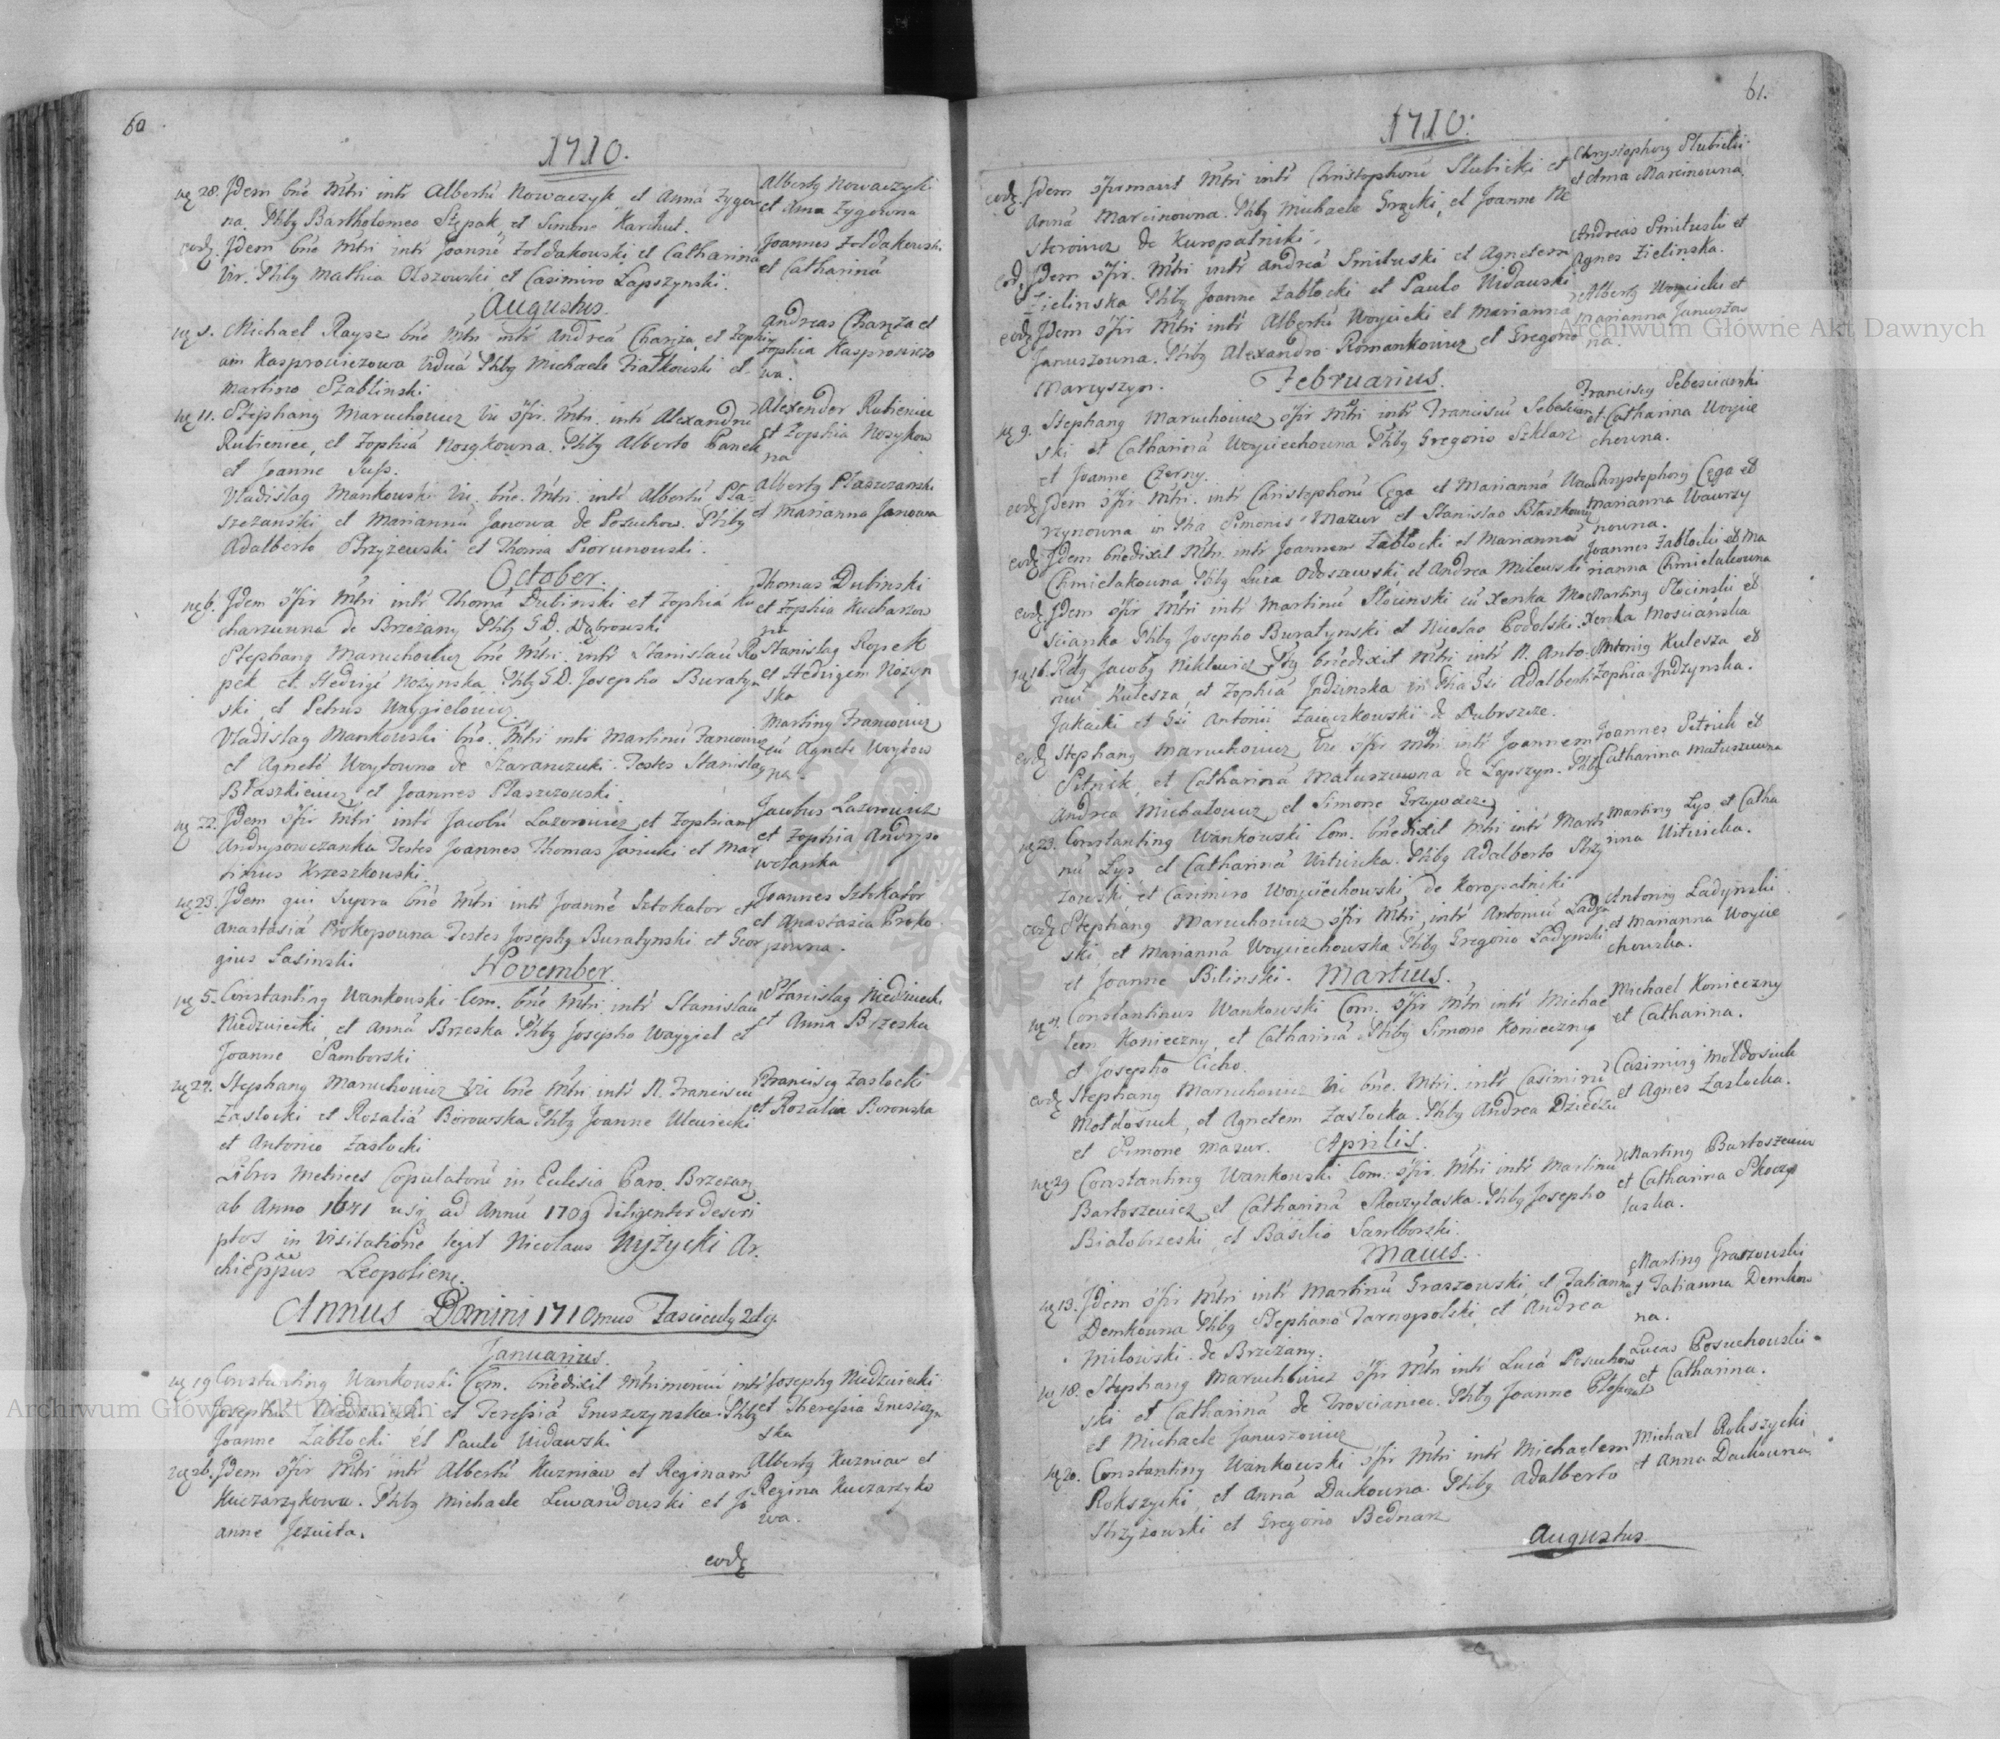 60
1710.
28. Idem bñe Mtri intr Albertũ Nowaczyk et Annã Zygow
na. Ptibg Bartholomeo Stępak et Simone Karchut.
Albertg Nowaczyk
et Anna Zygowna
eodę. Idem bñe Mtri intr Joannẽ Zoldakowski et Catharinã
Vir. Ptibg Mathia Olszowski, et Casimiro Lapszynski.
Joannes Zoldakowski
et Catharina
Augustus.
Michael Raysz bñe Mtri intr Andreã Chanza et Zophi
am Kasprowiczowa Viduã Ptibg Michaele Fiałkowski et
Martino Szablinski
Andreas Chanza et
Zophia Kasprowiczo
wa.
11. Stephang Maruchowicz Vic sfir. Mtri. intr Alexandrũ
Rubieniec, et Zophiã Nosykowna. Ptibg Alberto Panek
et Joanne Jusp.
Alexander Rubieniec
et Zophia Nosykow
na
Vladislag Mankowski Vic. bñe. Mtri. intr Albertũ Pła-
szczanski et Mariannũ Janowa de Posuchow. Ptibg
Adalberto Przyżewski et Thoma Piorunowski.
Albertg Płaszczanski
et Marianna Janowa
October.
6. Idem sfir Mtri intr Thomã Dubinski et Zophiã Ku
charzuwna de Brzezany Ptibg G.D. Dąbrowski
Thomas Dubinski
et Zophia Kucharzow
na
Stephang Maruchowicz bñe Mtri. intr Stanislaũ Ro
pek et Hedvigẽ Nozynska, Ptibg G.D. Josepho Buraty
ski et Petrus Waygielowicz
Stanislag Ropek
et Hedvigem Nozyn
ska
Vladislag Mankowski bñe. Mtri intr Martinũ Francowic
et Agnetẽ Woytowna de Szaranczuki. Testes Stanislag
Błaszkiewicz et Joannes Płaszczowski
Marting Francowicz
cũ Agnete Woytow
na.
22. Idem sfir Mtri intr Jacobũ Lazorowicz et Zophiam
Andrysowczanka Testes Joannes Thomas Janicki et Mar
tinus Krzeszkowski.
Jacobus Lazorowicz
et Zophia Andryso
wczanka
23. Idem qui supra bñe Mtri intr Joannẽ Sztokator et
Anastasiã Prokopowna Testes Josephg Buratynski et Geor
gius Sasinski
Joannes Sztukator
et Anastasia Proko
powna.
November
5. Constanting Wankowski Com. bñe Mtri intr Stanislaũ
Niedzwiecki, et Annã Brzeska Ptibg Josepho Waygiel et
Joanne Samborski
Stanislag Niedzwiecki
et Anna Brzeska
27. Stephang Maruchowicz Vic bñe Mtri intr N. Franciscũ
Zasłocki et Rozaliã Borowska Ptibg Joanne Ulewiecki
et Antonio Zasłocki
Franciscg Zasłocki
et Rozalia Borowska
Libros Metrices Copulatorũ in Eclesia Paro. Brzezan.
ab Anno 1671 usq ad Annũ 1709 diligenter descri
ptos in Visitatione legit Nicolaus Wyżycki Ar.
chieppus Leopolien.
Annus Domini 1710mus Fasciculg 2dg.
Januarius.
19 Constanting Wankowski Com. bñedixit Mtrimoniũ intr
Josephũ Niedzwiecki et Teressiã Gruszczynska. Ptibg
Joanne Zabłocki et Paulo Vidawski
Josephg Niedzwiecki
et Theressia Gruszczyn
ska
26. Idem sfir Mtri intr Albertũ Kuzniar et Reginam
Kuczarzykowa. Ptibg Michaele Lewandowski et Jo
anne Jezuita.
Albertg Kuzniar et
Regina Kuczarzyko
wa.
eodę
61.
1710.
eodę. Idem sfirmavit Mtri intr Christophorũ Słubicki et
Annã Marcinowna. Ptibg Michaele Grzęki, et Joanne Ne
sterowicz de Kuropatniki.
Chrystophorg Słubicki
et Anna Marcinowna
eod. Idem sfir. Mtri intr Andreã Smituski et Agnetem
Zielinska Ptibg Joanne Zabłocki et Paulo Vidawski
Andreas Smituski et
Agnes Zielinska.
eodę Idem sfir Mtri intr Albertũ Woycicki et Marianna
Januszowna. Ptibg Alexandro Romankowicz et Gregorio
Marcyszyn.
Albertg Woycicki et
Marianna Januszow
na.
Februarius.
9. Stephang Maruchowicz sfir Mtri intr Franciscũ Sebescian
ski et Catharinã Woyciechowna Ptibg Gregorio Szklarz
et Joanne Czerny.
Franciscg Sebescianski
et Catharina Woycie
chowna.
eodę Idem sfir Mtri. intr Christophorũ Cęga et Mariannã Waw
rzynowna in Pña Simonis Mazur et Stanislao Błaszkowicz
Chrystophorg Cęga et
Marianna Wawrzy
nowna.
eodę Idem bñedixit Mtri. intr Joannem Zabłocki et Mariannã
Chmielakowna Ptibg Luca Odoszewski, et Andrea Milewski
Joannes Zabłocki et Ma
rianna Chmielakowna
eodę Idem sfir Mtri intr Martinũ Słocinski cũ Xenka Mo
scianka Ptibg Josepho Buratynski et Nicolao Podolski.
Marting Słocinski et
Xenka Moscianska
16. Rdg Jacobg Niklewicz Ptg bñedixit Mtri intr N. Anto.
niũ Kulesza, et Zophiã Jndzinska in Pña Gsi Adalberti
Jakacki et Gsi Antonii Zaiączkowski de Dubrszcze.
Antonig Kulesza et
Zophia Jndzynska.
eodę Stephang Maruchowicz Vic sfir Mtri intr Joannem
Sitnik, et Catharinã Matuszuwna de Lopszyn. Ptibg
Andrea Michałowicz et Simone Grzywacz
Joannes Sitnik et
Catharina Matuszuwna
23. Constanting Wankowski Com. bñedixit Mtri intr Marti
nũ Lys et Catharinã Witwicka. Ptibg Adalberto Strzy
zowski, et Casimiro Woyciechowski de Koropatniki
Marting Lys et Catha
rina Witwicka.
eodę Stephang Maruchowicz sfir Mtri intr Antoniũ Ladyn
ski, et Mariannã Woyciechowska Ptibg Gregorio Ladynski
et Joanne Bilinski.
Antonig Ladynski
et Marianna Woycie
chowska.
Martius.
Constantinus Wankowski Com. sfir Mtri intr Michae
lem Konieczny, et Catharinã Ptibg Simone Konieczny
et Josepho Cicho.
Michael Konieczny
et Catharina.
eodę Stephang Maruchowicz Vic bñe. Mtri. intr Casimirũ
Mołdosiuk, et Agnetem Zasłocka. Ptibg Andrea Dziedzic
et Simone Mazur.
Casimirg Mołdosiuk
et Agnes Zasłocka.
Aprilis.
29 Constanting Wankowski Com. sfir. Mtri intr Martinũ
Bartoszewicz et Catharinã Skoczylaska. Ptibg Josepho
Białobrzeski et Basilio Samborski.
Marting Bartoszewicz
et Catharina Skoczy
laska.
Maius.
13. Idem sfir Mtri intr Martinũ Graszowski, et Taliannã
Demkowna Ptibg Stephano Tarnopolski, et Andrea
Milowski de Brzezany.
Marting Graszowski
et Talianna Demkow
na.
18. Stephang Maruchowicz sfir Mtri intr Lucã Posuchow
ski et Catharinã de Trościaniec. Ptibg Joanne
et Michaele Januszowicz
Lucas Posuchowski
et Catharina.
20. Constanting Wankowski sfir Mtri intr Michaelem
Rokszycki, et Annã Dackowna. Ptibg Adalberto
Strzyżowski et Gregorio Bednarz
Michael Rokszycki
et Anna Dackowna.
Augustus
Archiwum Główne Akt Dawnych
Archiwum Główne Akt Dawnych